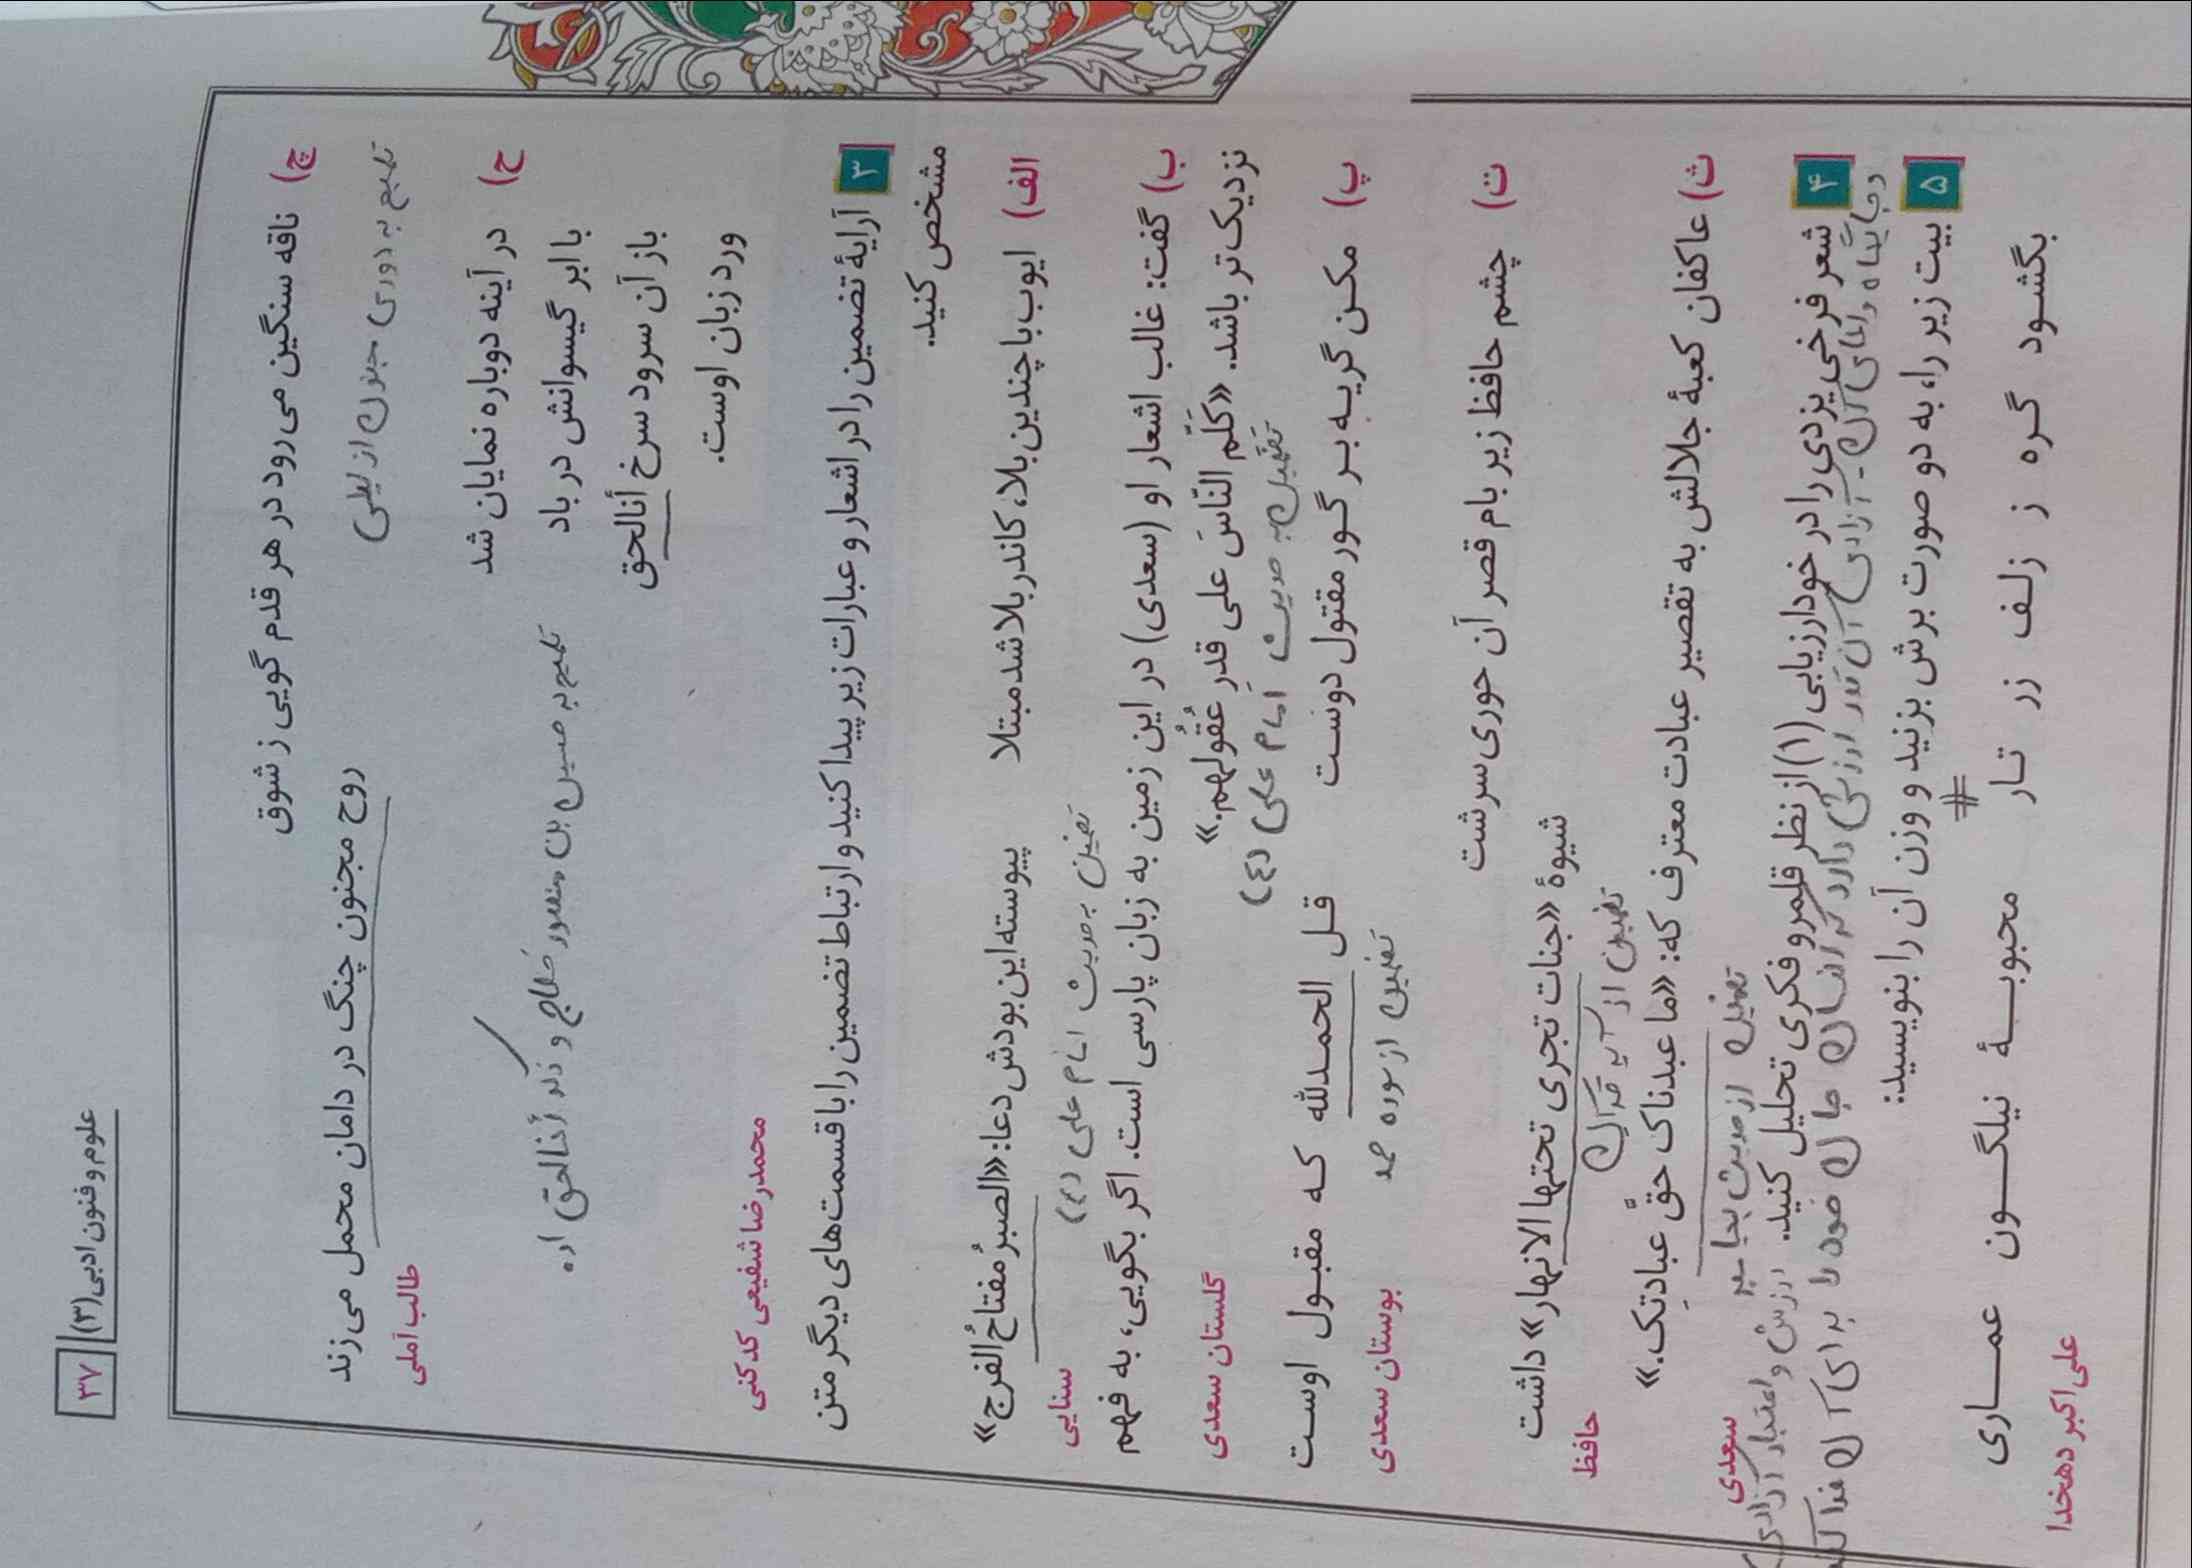 علوم و فنون ادبی (۳) ۳۷
چ) ناقه سنگین می‌رود در هر قدم گویی ز شوق
روح مجنون چنگ در دامان محمل می‌زند
طالب آملی
تلمیح به دوری مجنون از لیلی
ح) در آینه دوباره نمایان شد
با ابر گیسوانش در باد
باز آن سرود سرخ أناالحق
ورد زبان اوست.
محمدرضا شفیعی کدکنی
تلمیح به حسین بن منصور حلاج و ذکر أناالحق او
۳ آرایهٔ تضمین را در اشعار و عبارات زیر پیدا کنید و ارتباط تضمین را با قسمت‌های دیگر متن
مشخص کنید.
الف) ایوب با چندین بلا، کاندر بلا شد مبتلا پیوسته این بودش دعا: «الصبرُ مفتاحُ الفرج»
سنایی
تضمین به حدیث امام علی (ع)
ب) گفت: غالب اشعار او (سعدی) در این زمین به زبان پارسی است. اگر بگویی، به فهم
نزدیک‌تر باشد. «کَلِّم النّاسَ علی قدرِ عُقُولِهم.»
گلستان سعدی
تضمین به حدیث امام علی (ع)
پ) مکن گریه بر گور مقتول دوست قل الحمدلله که مقبول اوست
بوستان سعدی
تضمین از سوره حمد
ت) چشم حافظ زیر بام قصر آن حوری سرشت
شیوهٔ «جنات تجری تحتها الانهار» داشت
حافظ
تضمین از آیه قرآن
ث) عاکفان کعبهٔ جلالش به تقصیر عبادت معترف که: «ما عبدناک حقَّ عبادتِک.»
سعدی
تضمین از حدیث پیامبر
۴ شعر فرخی یزدی را در خودارزیابی (۱) از نظر قلمرو فکری تحلیل کنید. ارزش و اعتبار آزادی
و جایگاه والای آن - آزادی آن قدر ارزش دارد که انسان جان خود را برای آن فدا کند
۵ بیت زیر را، به دو صورت برش بزنید و وزن آن را بنویسید:
بگشود گره ز زلف زر تار محبوبهٔ نیلگون عماری
علی‌اکبر دهخدا